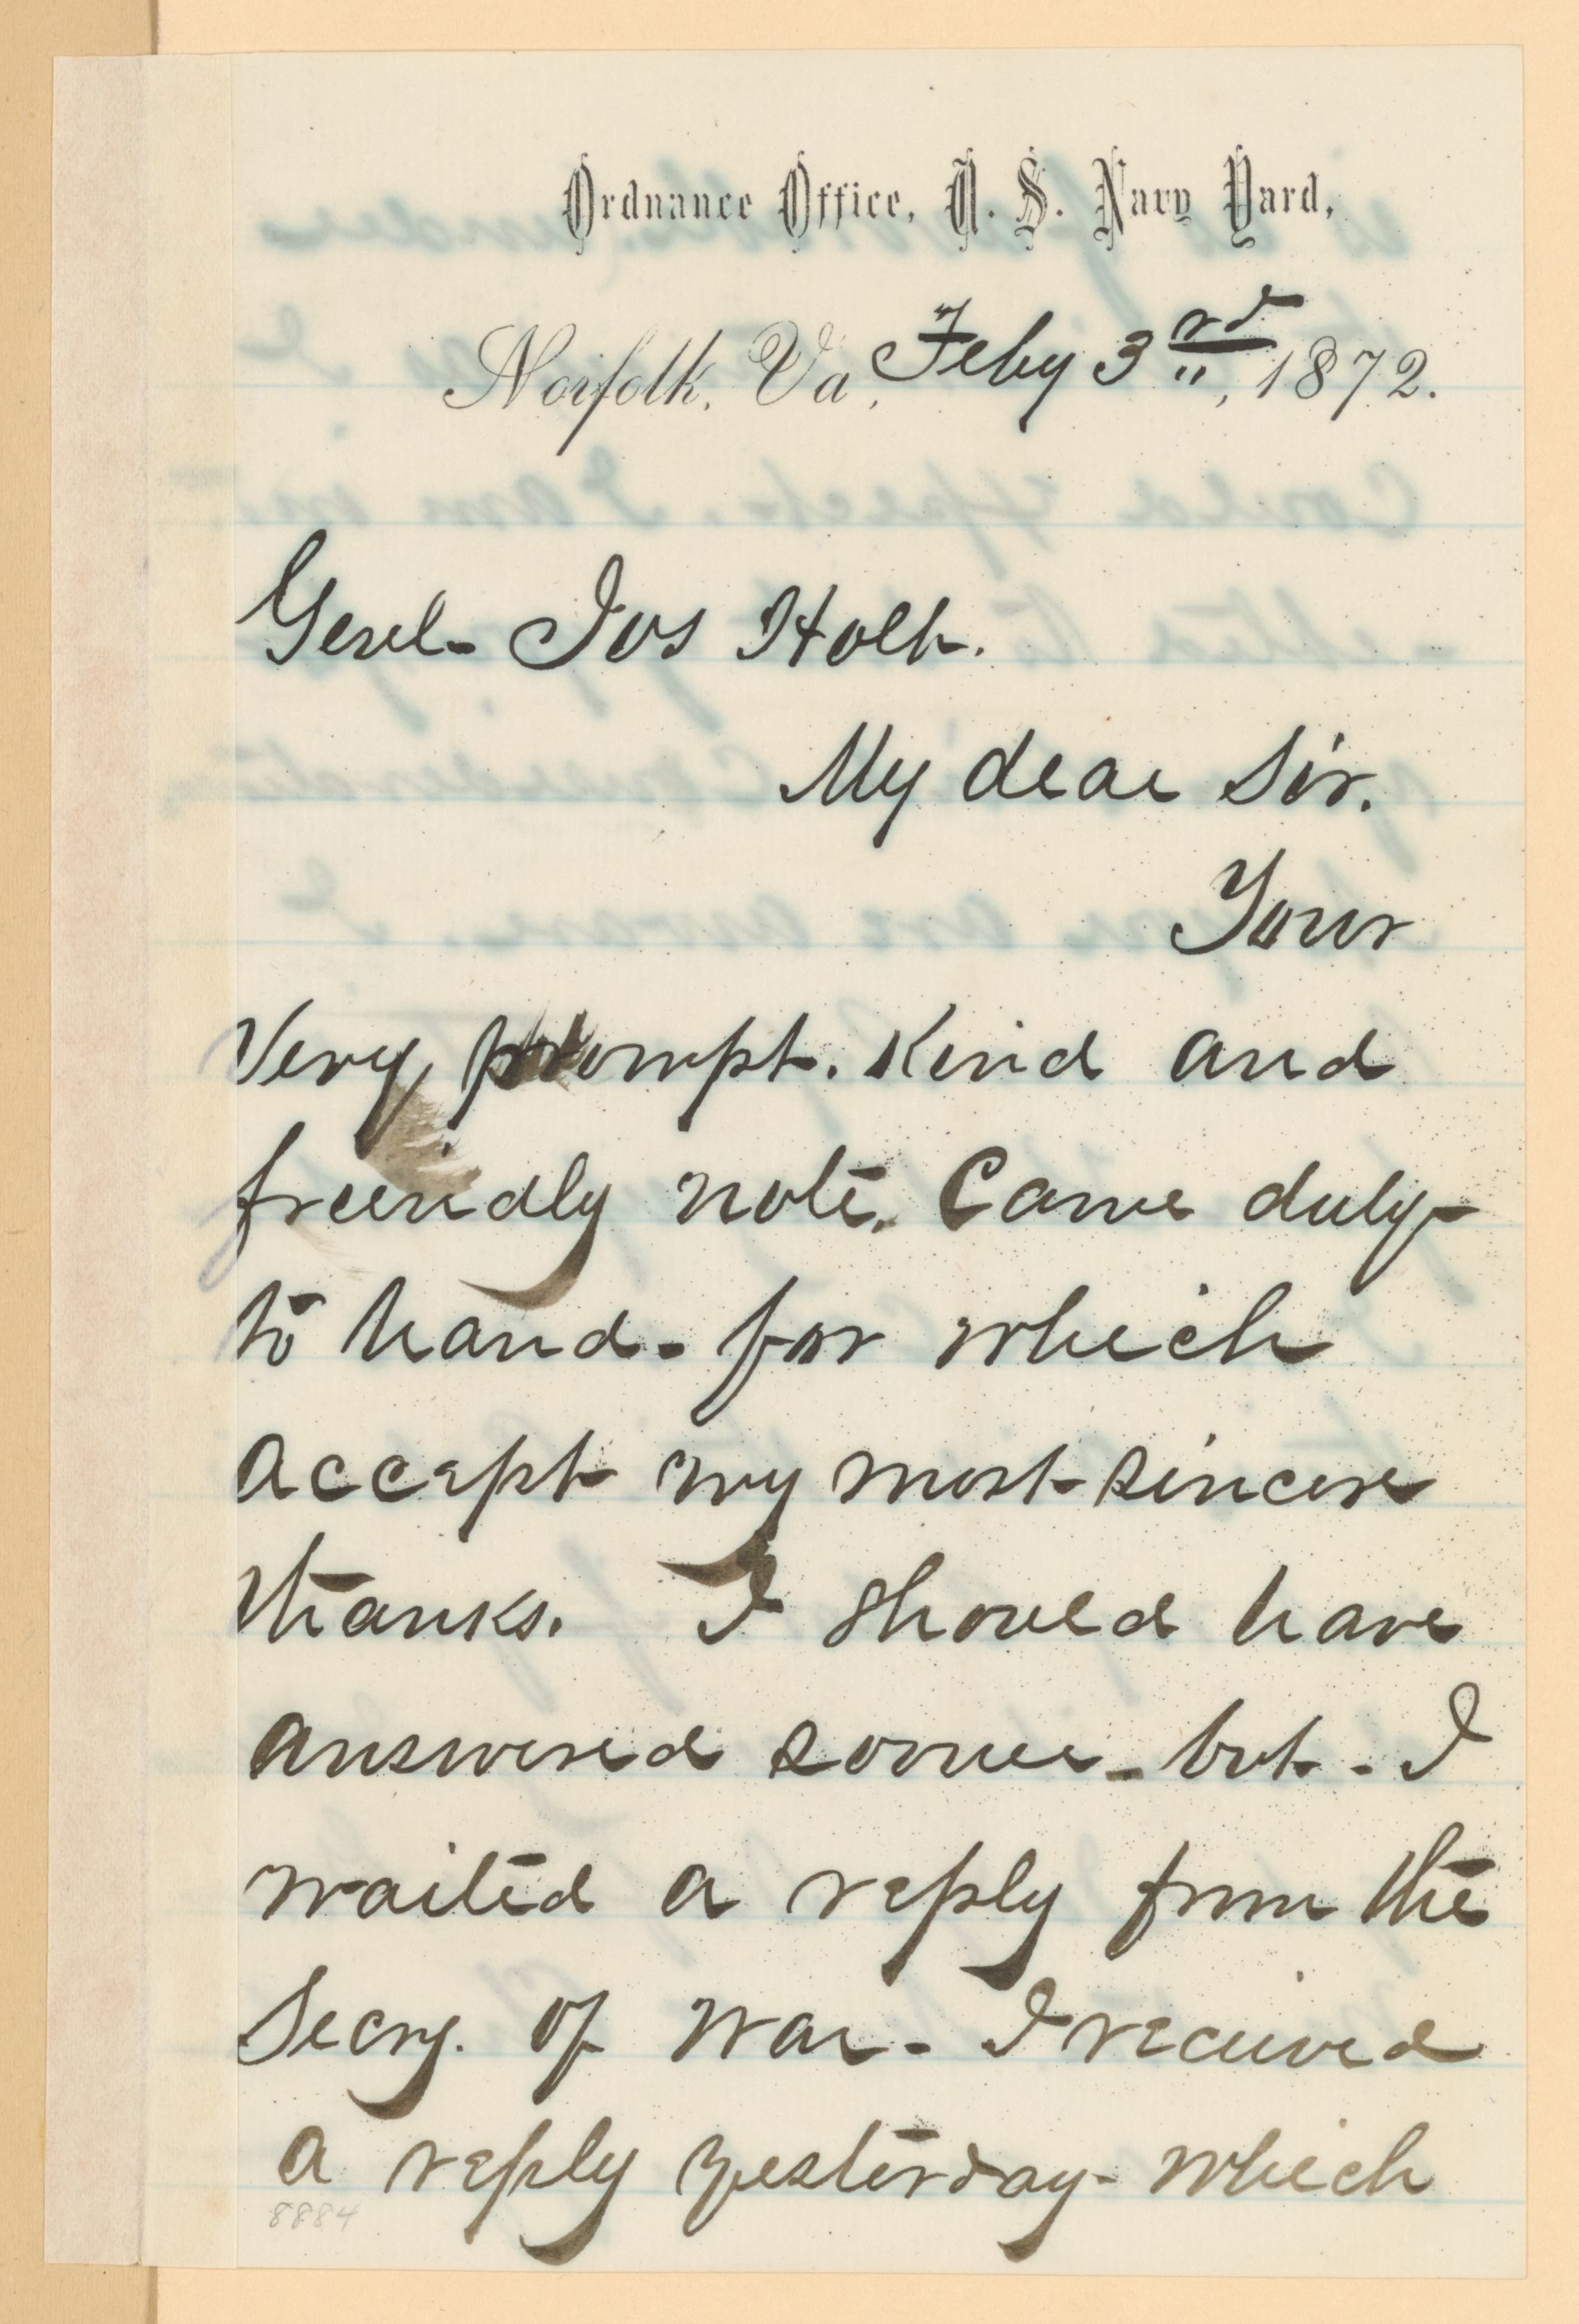 Ordnance Office, U. S. Navy Yard,
Norfolk, Va, Feby 3rd, 1872.
Genl- Jos Holt.
My dear Sir.
Your
Very prompt. Kind and
friendly note. Came duly-
to hand- for which
accept my most sincere
thanks. I should have
answered sooner- but- I
waited a reply from the
Secry. of War- I received
a reply yesterday- which
8884